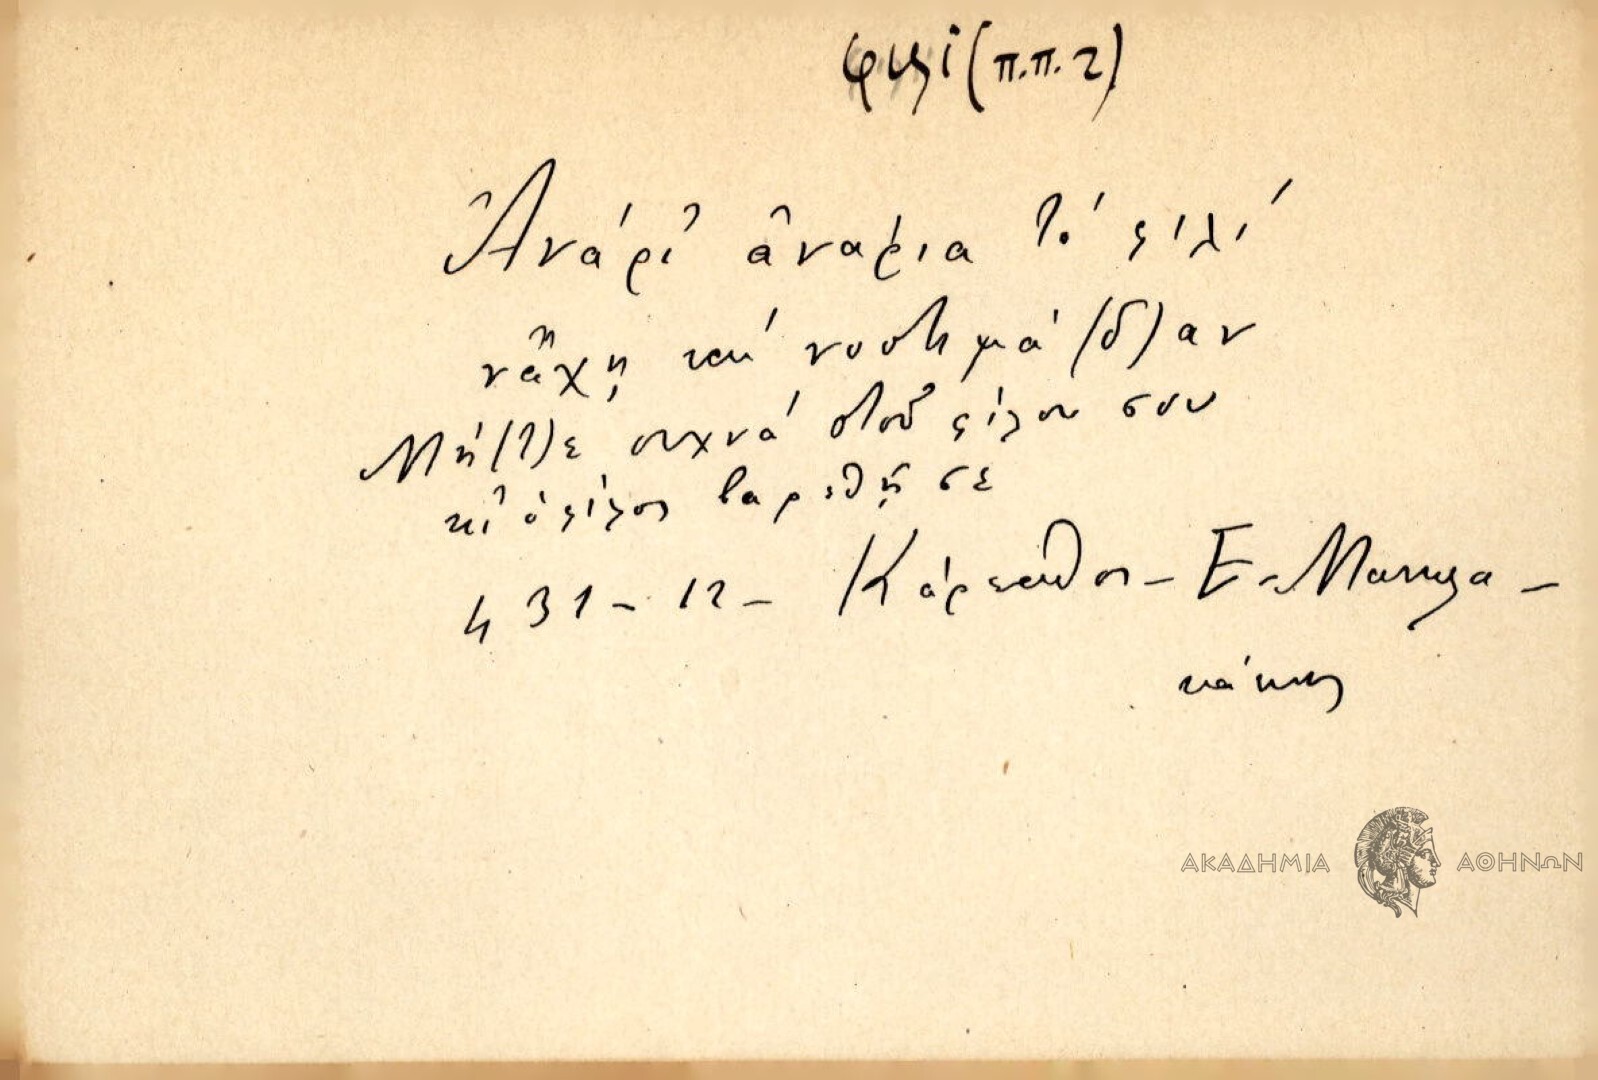 (π.π. 2)
Ἀνάρι' ἀνάρια τὸ φιλί
νἄχῃ καὶ νοστιμά(δ)αν
Μή(τ)ε συχνά στοῦ φίλου σου
κι' ὁ φίλος βαρεθῇ σε
431 - 12 - Κάρπαθος - Ε. Μανωλα -
κάκης
ΑΚΑΔΗΜΙΑ ΑΘΗΝΩΝ